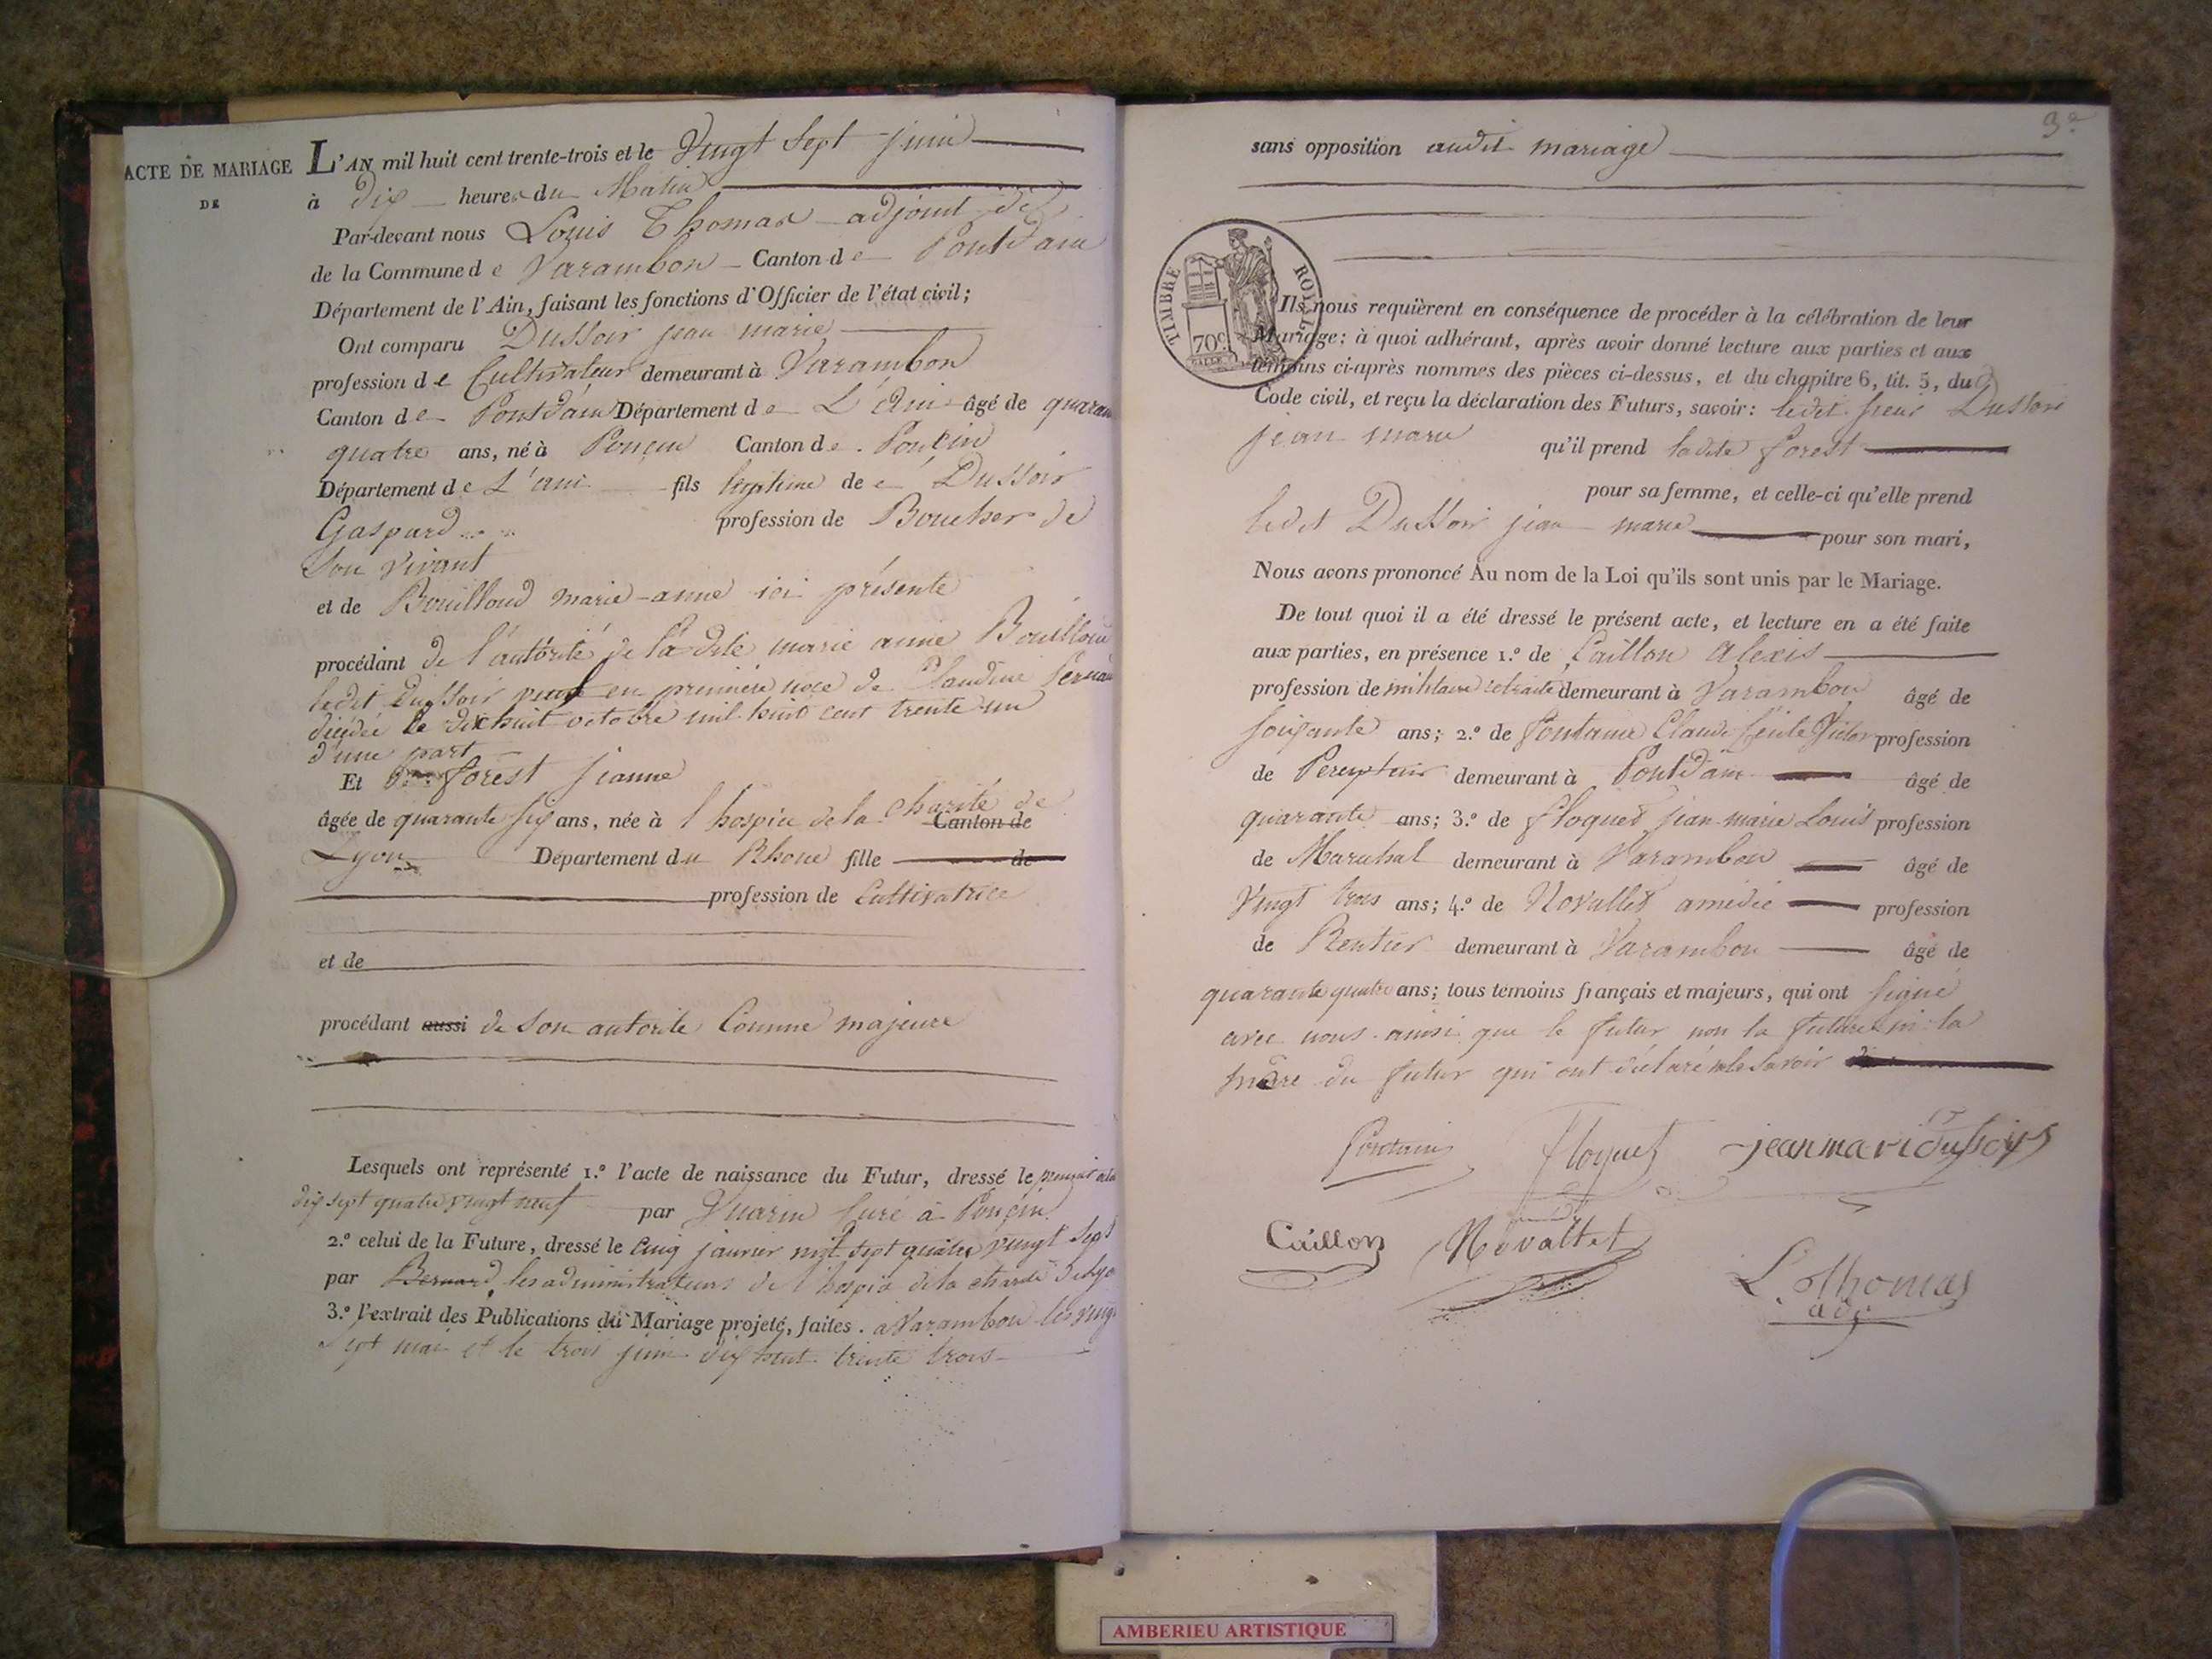 ACTE DE MARIAGE
DE
L'AN mil huit cent trente-trois et le Vingt Sept juin
à dix heures du Matin
Par-devant nous Louis Thomas adjoint de
de la Commune de Varambon Canton de Pont d'ain
Département de l'Ain, faisant les fonctions d'Officier de l'état civil;
Ont comparu Dussoir jean marie
profession de Cultivateur demeurant à Varambon
Canton de Pont d'ain Département de L'Ain âgé de quaran
quatre ans, né à Poncin Canton de Poncin
Département de L'ain fils légitime de Dussoir
Gaspard profession de Boucher de
Son vivant
et de Bouilloud marie-anne ici présente
procédant de l'autorité de la dite marie anne Bouilloud
ledit Dussoir veuf en première noce de Claudine
décédée le dix huit octobre mil huit cent trente un
d'une part
Et forest jeanne
âgée de quarante six ans, née à l'hospice de la charité de
Canton de
Lyon Département du Rhone fille de
profession de Cultivatrice
et de
procédant aussi de son autorité Comme majeure
Lesquels ont représenté 1.º l'acte de naissance du Futur, dressé le premier
dix sept quatre vingt neuf par Guarin Curé à Poncin
2.º celui de la Future, dressé le cinq janvier mil sept quatre vingt sept
par Bernard les administrateurs de l'hospice de la charité de Lyo
3.º l'extrait des Publications du Mariage projeté, faites à Varambon les vingt
sept mai et le trois juin dix huit trente trois
3e
sans opposition audit mariage
TIMBRE ROYAL
70c
Ils nous requièrent en conséquence de procéder à la célébration de leur
Mariage: à quoi adhérant, après avoir donné lecture aux parties et aux
témoins ci-après nommés des pièces ci-dessus, et du chapitre 6, tit. 5, du
Code civil, et reçu la déclaration des Futurs, savoir: ledit sieur Dussoir
jean marie qu'il prend ladite forest
pour sa femme, et celle-ci qu'elle prend
ledit Dussoir jean marie pour son mari,
Nous avons prononcé Au nom de la Loi qu'ils sont unis par le Mariage.
De tout quoi il a été dressé le présent acte, et lecture en a été faite
aux parties, en présence 1.º de Caillon Alexis
profession de militaire retraité demeurant à Varambon âgé de
soixante ans; 2.º de fontaine Claude profession
de Percepteur demeurant à Pont d'ain âgé de
quarante ans; 3.º de floquet jean marie Louis profession
de Marechal demeurant à Varambon âgé de
Vingt trois ans; 4.º de Novallet amédée profession
de Rentier demeurant à Varambon âgé de
quarante quatre ans; tous témoins français et majeurs, qui ont signé
avec nous ainsi que le futur non la future ni la
mère du futur qui ont déclaré ne le savoir
Fontaine Floquet jean mari dussoir
Caillon Novallet
L. Thomas
adj
AMBERIEU ARTISTIQUE